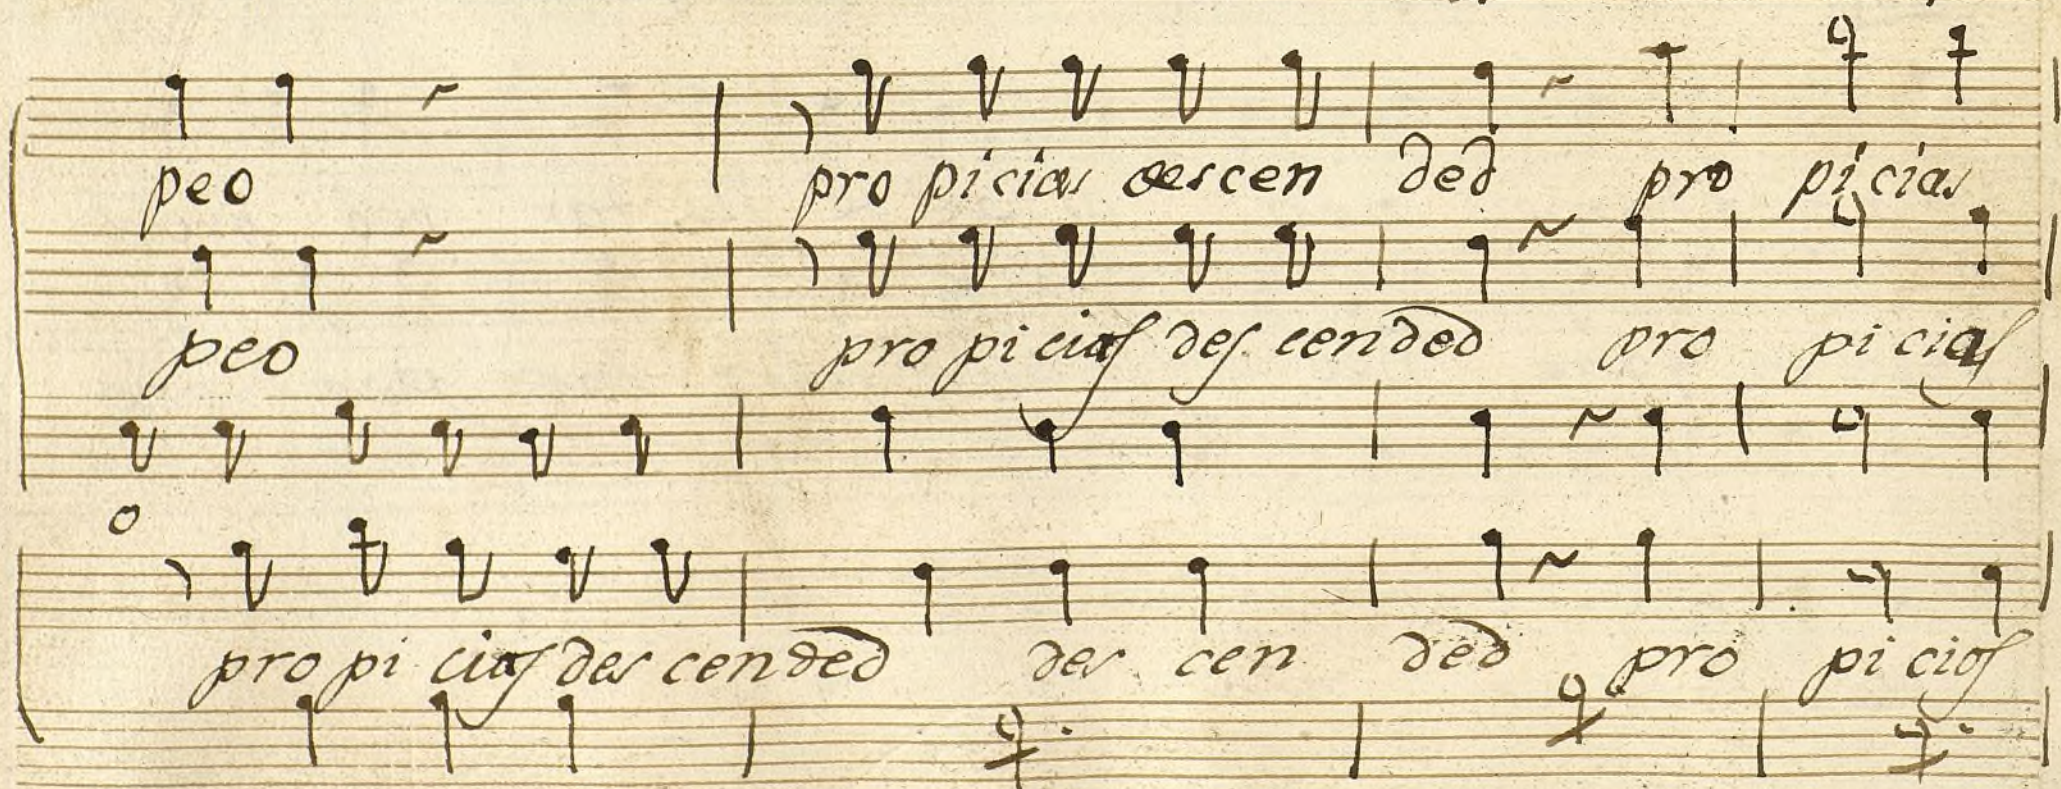 peo pro picias descen ded pro picias
peo pro pi cias des cended pro pi cias
o
pro pi cias des cended des cen ded pro pi cias